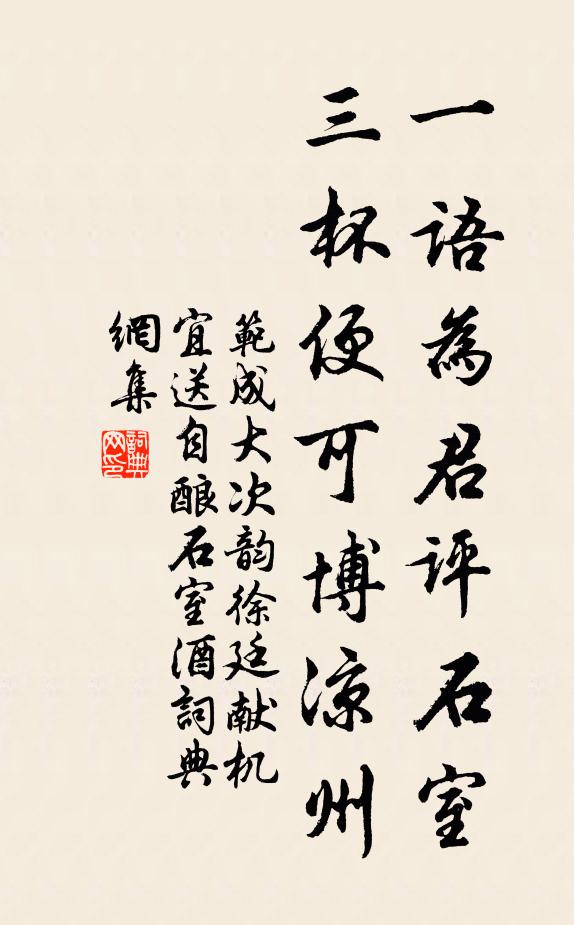 一語為君評石室
三杯便可博涼州
範成大次韵徐廷献机
宜送自酿石室酒詞典
網集
詞典
网印